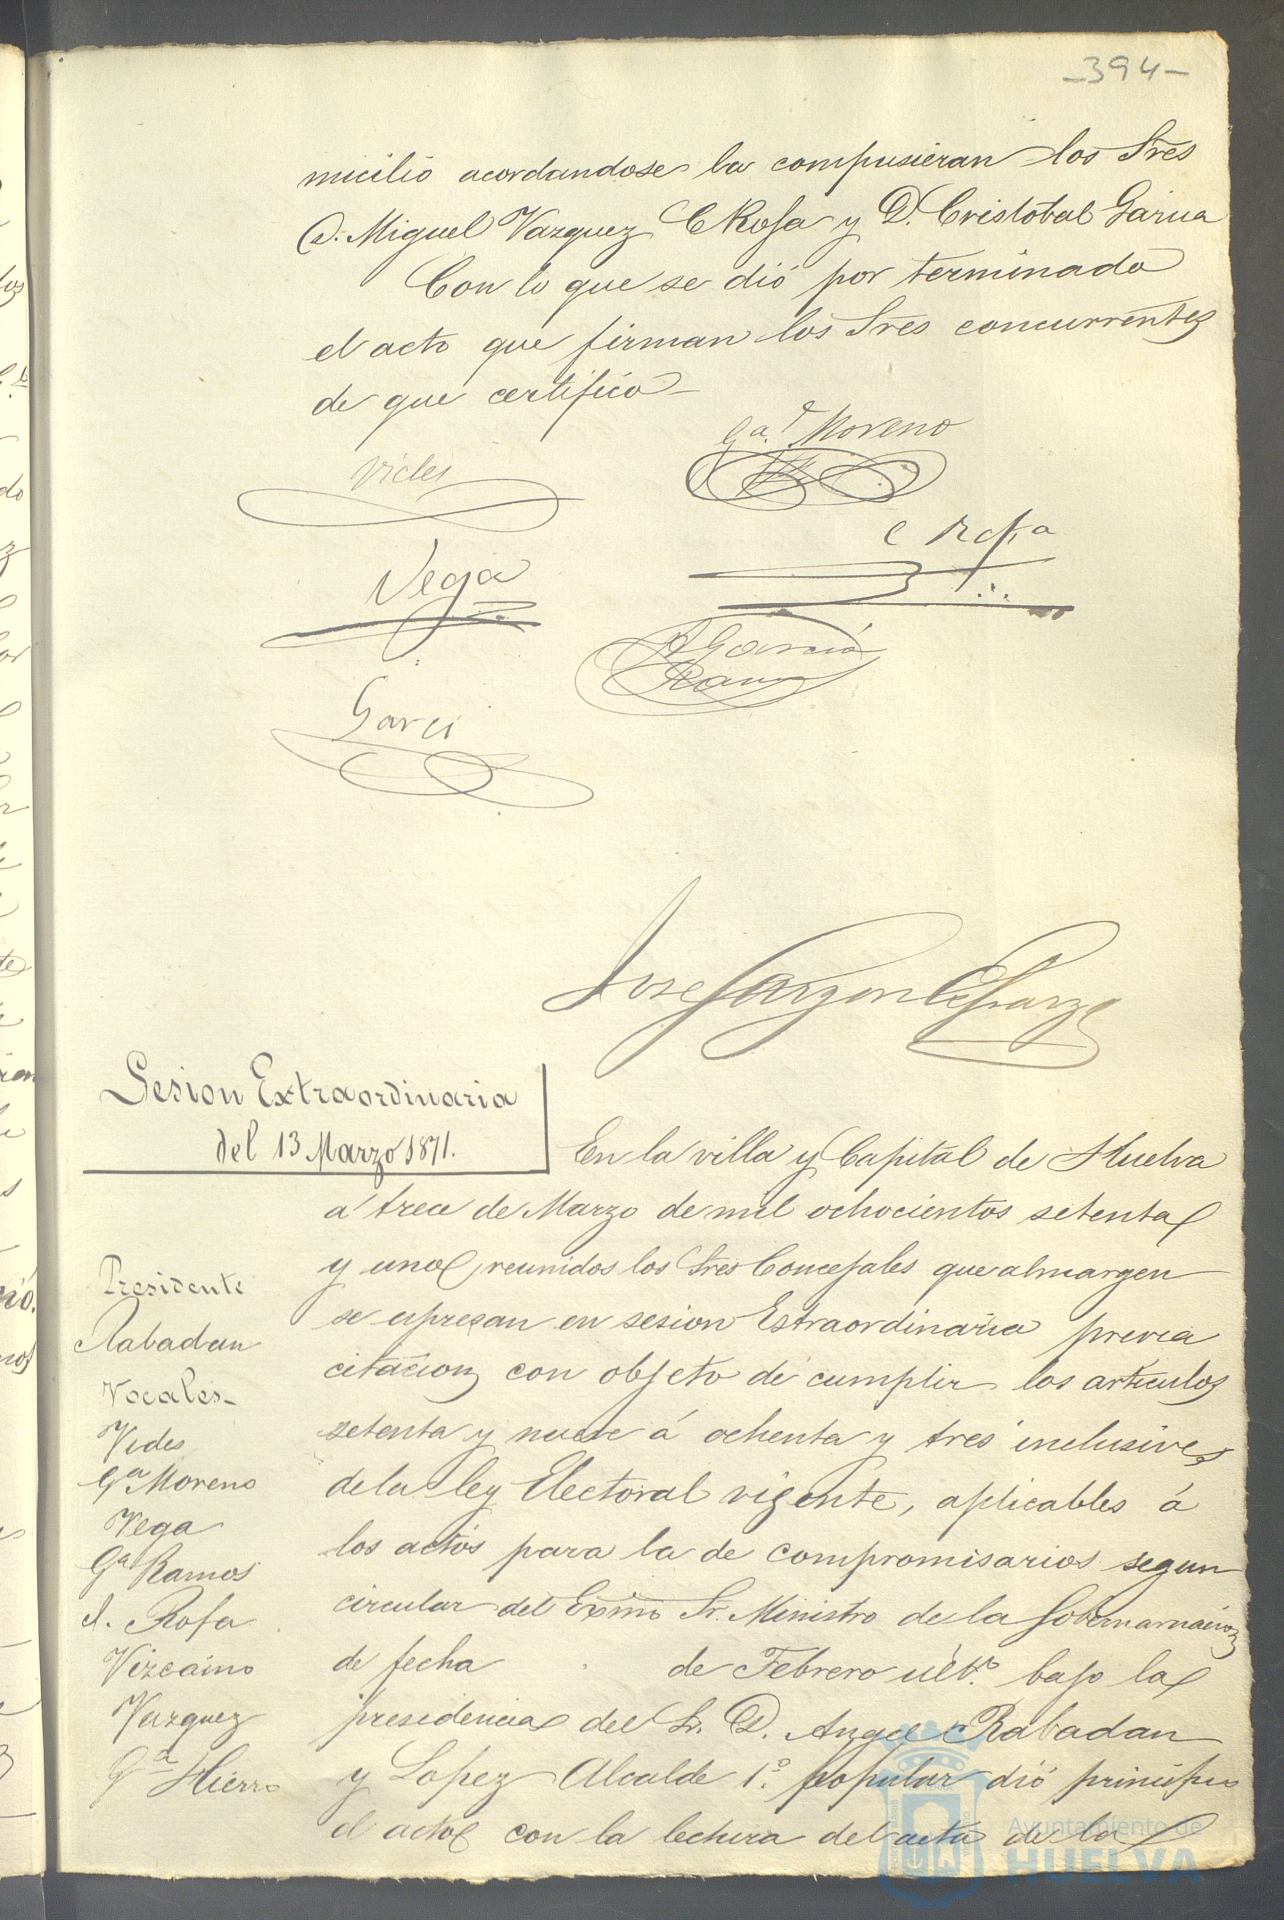 -394-
micilio acordandose la compusieran los Sres
D. Miguel Vazquez C Rofa y D. Cristobal Garcia
Con lo que se dió por terminado
el acto que firman los Sres concurrentes
de que certifico-
Vides
Gª. Moreno
C Rofa
Vega
Garcia
Ramos
Garci
Jose Garzon
Sesion Extraordinaria
del 13 Marzo 1871.
En la villa y Capital de Huelva
á trece de Marzo de mil ochocientos setenta
y uno reunidos los Sres Concejales que al margen
se espresan en sesion Estraordinaria previa
citacion con objeto de cumplir los articulos
setenta y nueve á ochenta y tres inclusives
de la ley Electoral vigente, aplicables á
los actos para la de compromisarios segun
circular del Exmo Sr. Ministro de la Gobernarnacion
de fecha de Febrero ultº. bajo la
presidencia del Sr. D. Angel Rabadan
y Lopez Alcalde 1º. popular dió principio
el acto con la lectura del acta de la
Presidente
Rabadan
Vocales-
Vides
Gª Moreno
Vega
Gª Ramos
C. Rofa
Vizcaino
Vazquez
Gª Hierro
Ayuntamiento de
HUELVA